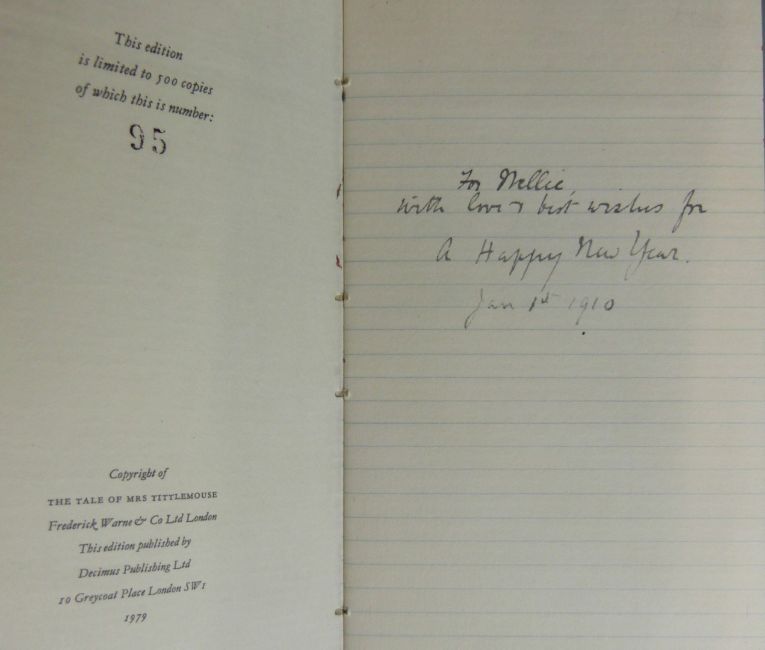 This edition
is limited to 500 copies
of which this is number:
95
Copyright of
THE TALE OF MRS TITTLEMOUSE
Frederick Warne & Co Ltd London
This edition published by
Decimus Publishing Ltd
10 Greycoat Place London SW1
1979
For Nellie,
with love & best wishes for
A Happy New Year.
Jan 1st 1910